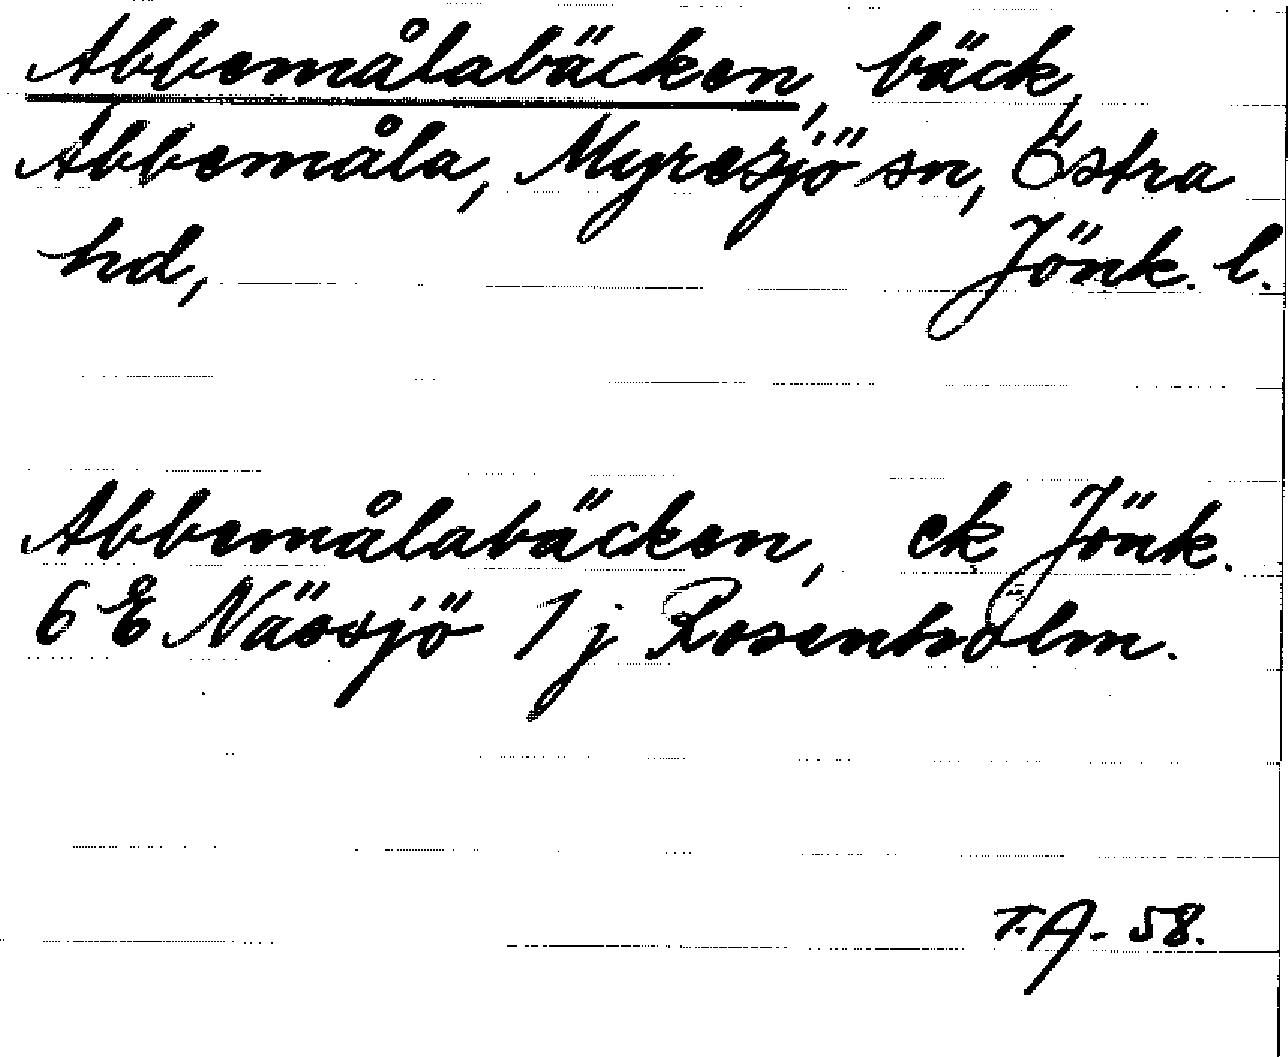 Abbemålabäcken, bäck,
Abbemåla, Myresjö sn, Östra
hd, Jönk. l.
Abbemålabäcken, ek Jönk.
6 E Nässjö 1 j Rosenholm.
T.A. 58.